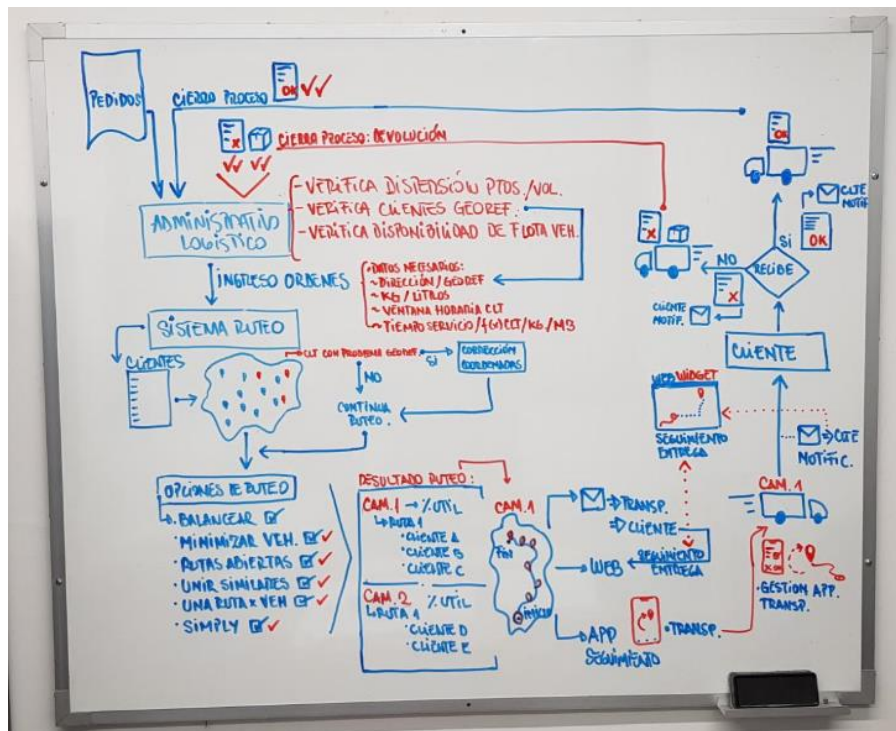 PEDIDOS
CIERRO PROCESO
OK
X
CIERRA PROCESO: DEVOLUCIÓN
ADMINISTRATIVO
LOGÍSTICO
- VERIFICA DISPENSIÓN PTOS./VOL.
- VERIFICA CLIENTES GEOREF.
- VERIFICA DISPONIBILIDAD DE FLOTA VEH.
INGRESO ORDENES
• DATOS NECESARIOS:
~ DIRECCIÓN/GEOREF
~ KG/LITROS
~ VENTANA HORARIA CLT
~ TIEMPO SERVICIO/f(x)CLT/KG/M3
SISTEMA RUTEO
CLIENTES
CLT CON PROBLEMA GEOREF.
SI
CORRECCIÓN
COORDENADAS
NO
CONTINUA
RUTEO.
OPCIONES DE RUTEO
• BALANCEAR
• MINIMIZAR VEH.
• RUTAS ABIERTAS
• UNIR SIMILARES
• UNA RUTA x VEH
• SIMPLY
RESULTADO RUTEO:
CAM. 1 → % UTIL
RUTA 1
• CLIENTE A
• CLIENTE B
• CLIENTE C
CAM. 2 % UTIL
RUTA 1
• CLIENTE D
• CLIENTE E
CAM. 1
FIN
INICIO
TRANSP.
CLIENTE
WEB
SEGUIMIENTO
ENTREGA
APP
SEGUIMIENTO
• TRANSP.
• GESTION APP.
TRANSP.
CAM. 1
CLTE
NOTIFIC.
WEB WIDGET
SEGUIMIENTO
ENTREGA
CLIENTE
RECIBE
NO
X
CLIENTE
NOTIF.
X
SI
OK
CLTE
NOTIF
OK